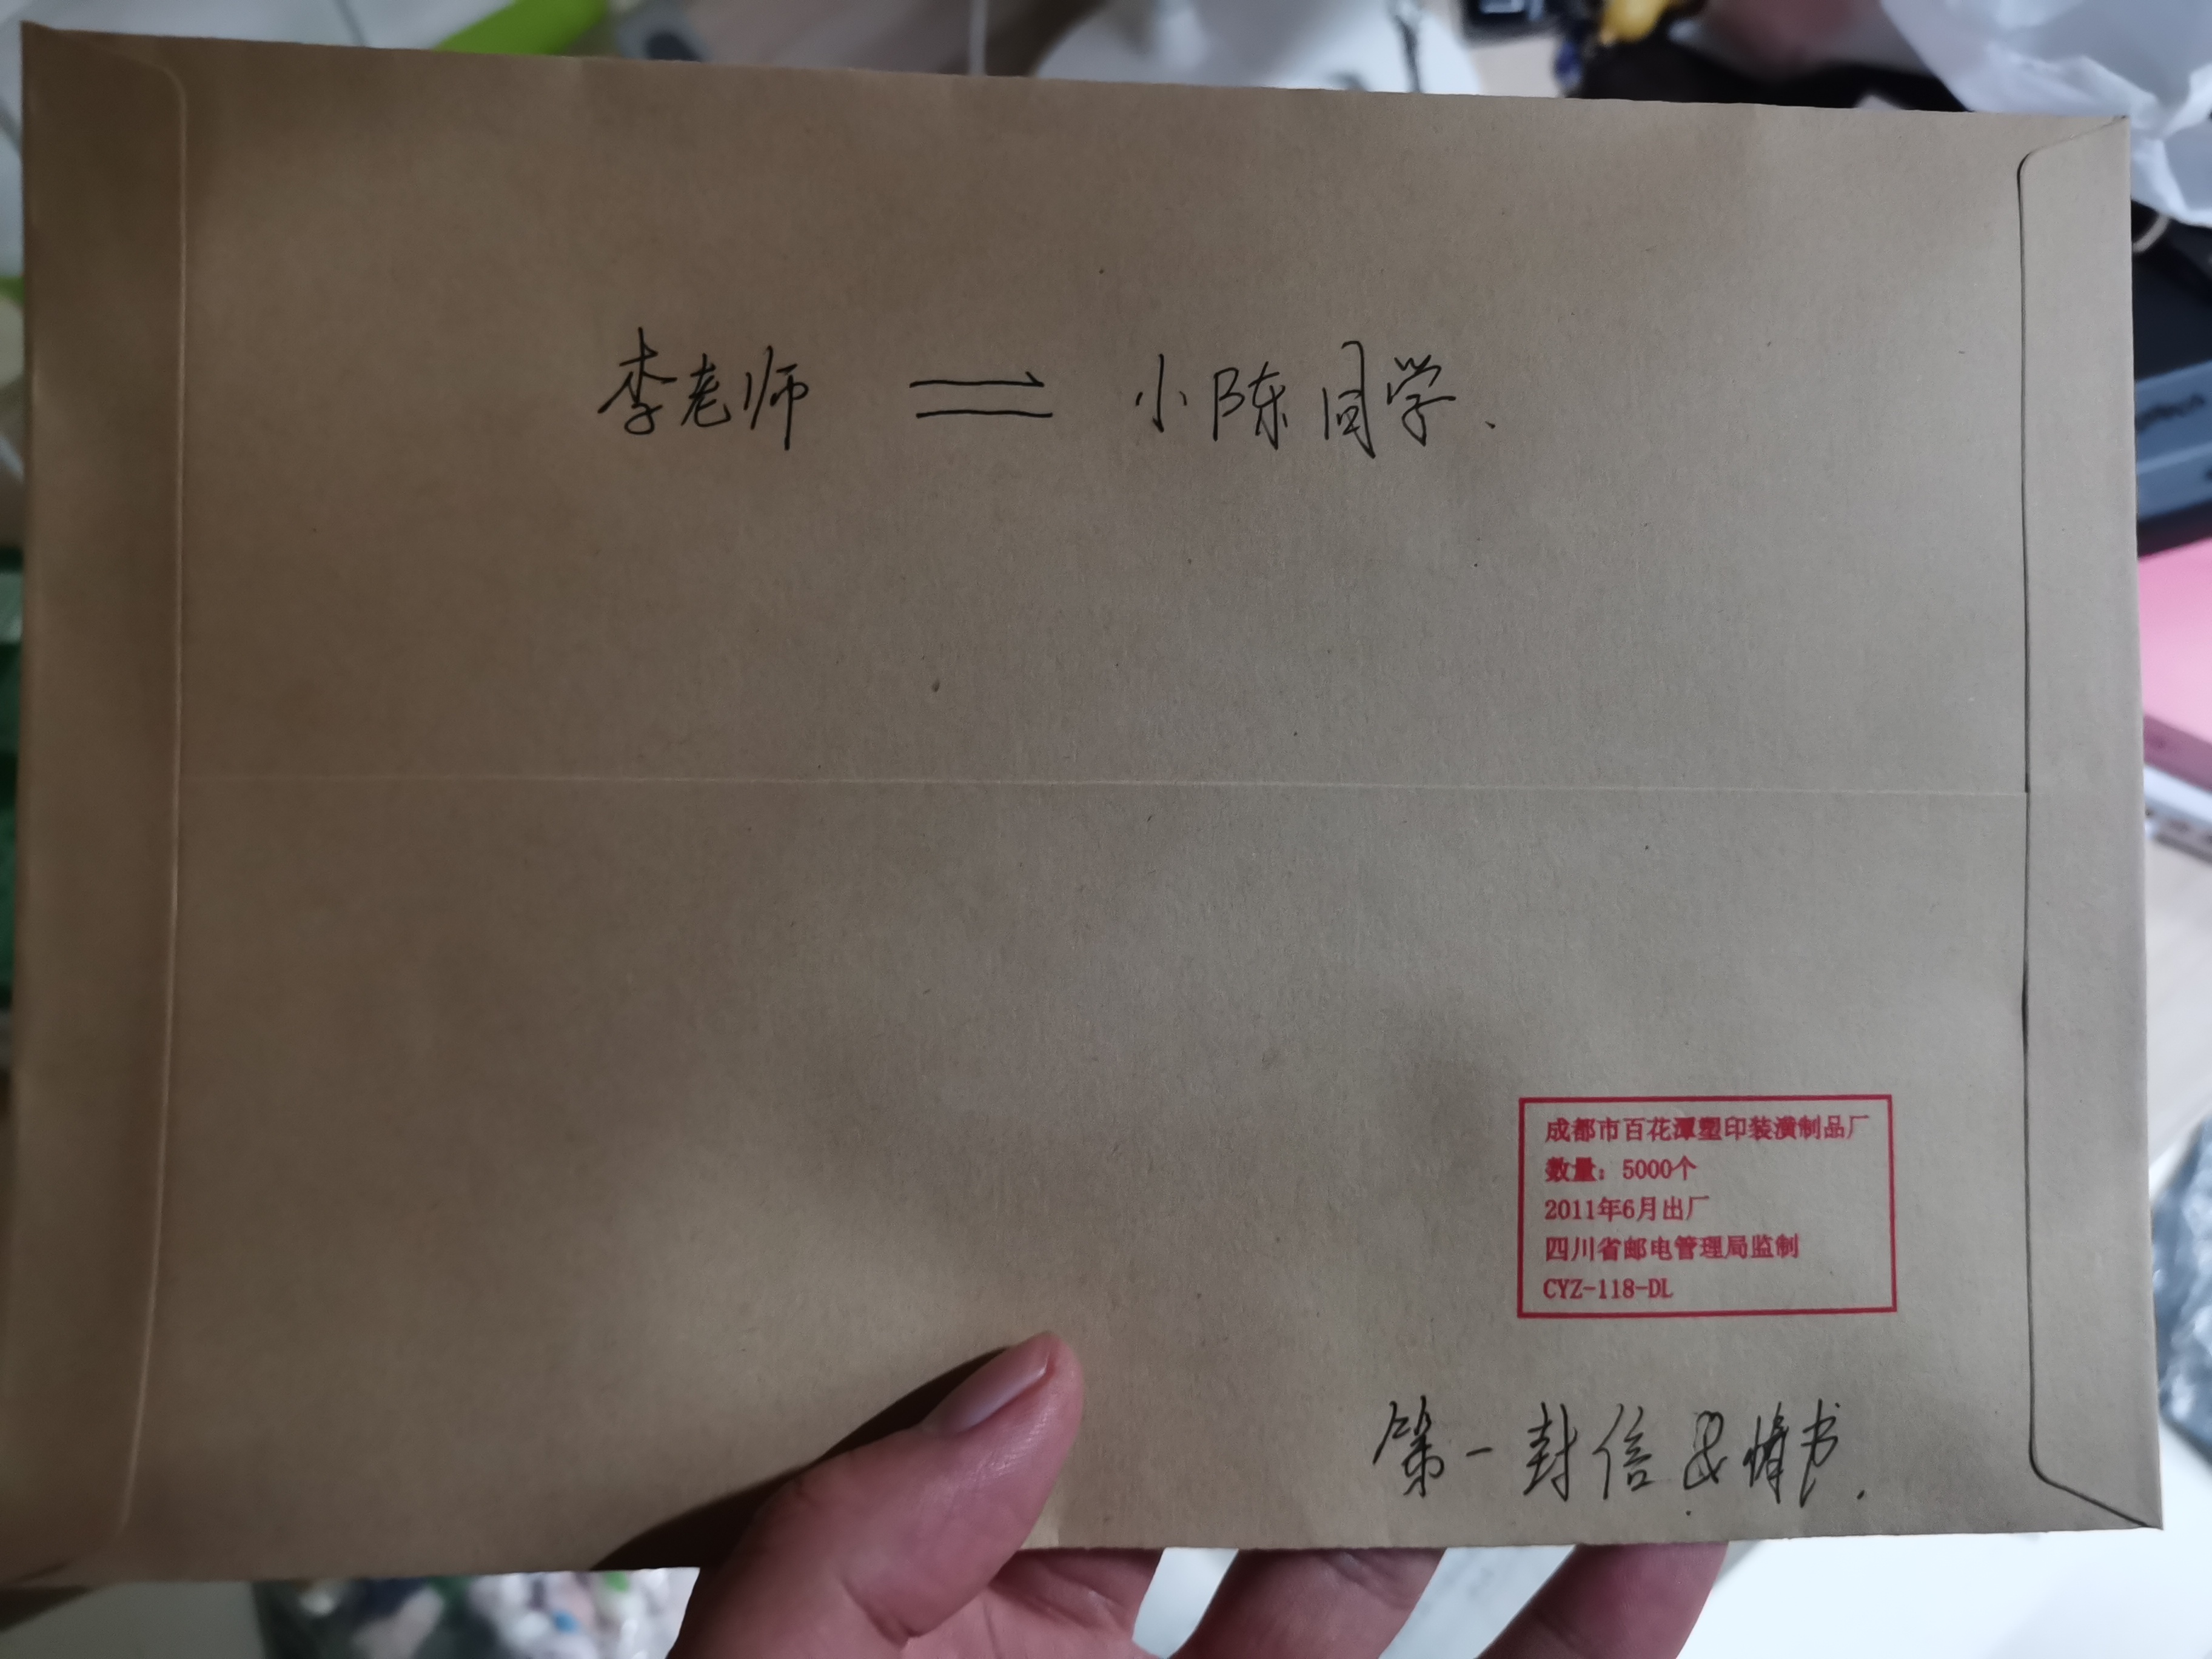 李老师 ⇌ 小陈同学.
成都市百花潭塑印装潢制品厂
数量：5000个
2011年6月出厂
四川省邮电管理局监制
CYZ-118-DL
第一封信&情书.